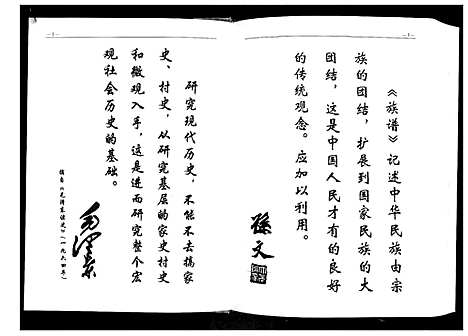 《族谱》记述中华民族由宗
族的团结，扩展到国家民族的大
团结，这是中国人民才有的良好
的传统观念。应加以利用。
孫文
研究现代历史，不能不去搞家
史、村史，从研究基层的家史村史
和微观入手，这是进而研究整个宏
观社会历史的基础。
毛泽东